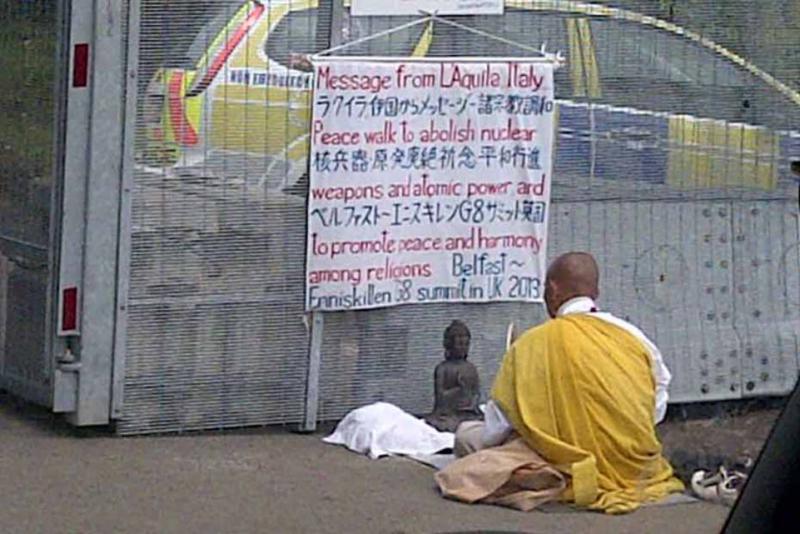 Message from L'Aquila, Italy
ラクイラ伊国からメッセージー諸宗教調和
Peace walk to abolish nuclear
核兵器・原発廃絶祈念・平和行進
weapons and atomic power, and
ベルファスト〜エニスキレンG8サミット英国
to promote peace and harmony
among religions Belfast ~
Enniskillen G8 summit in UK 2013